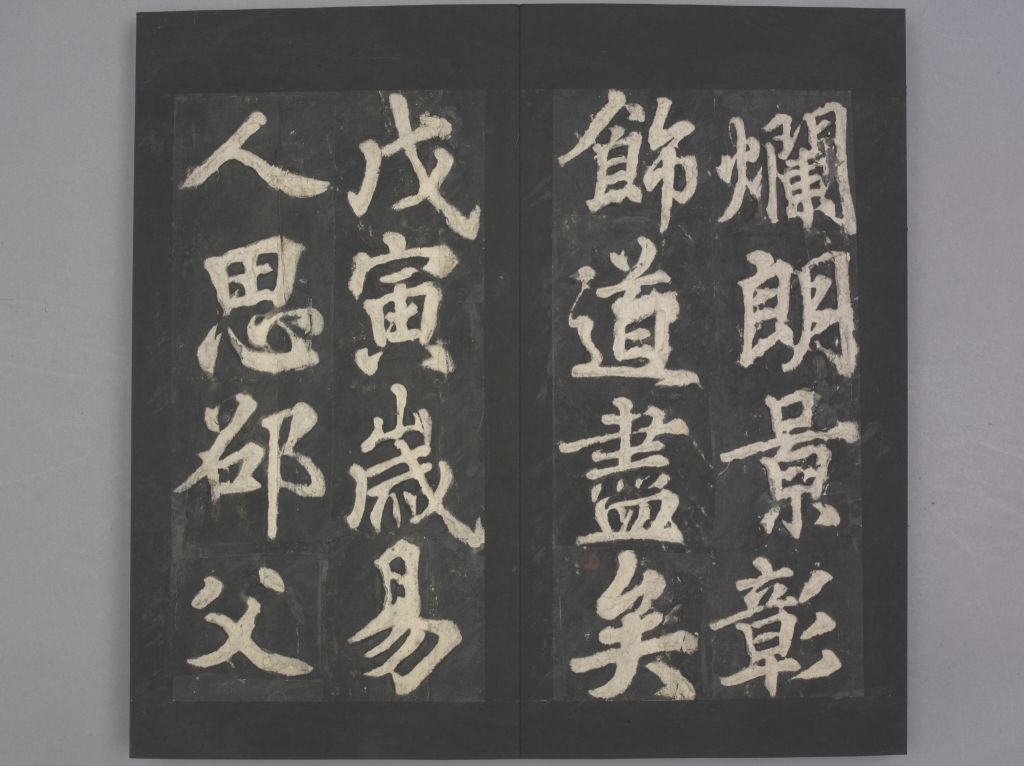 爛朗景彰
飾道盡矣
戊寅歲易
人思郤父